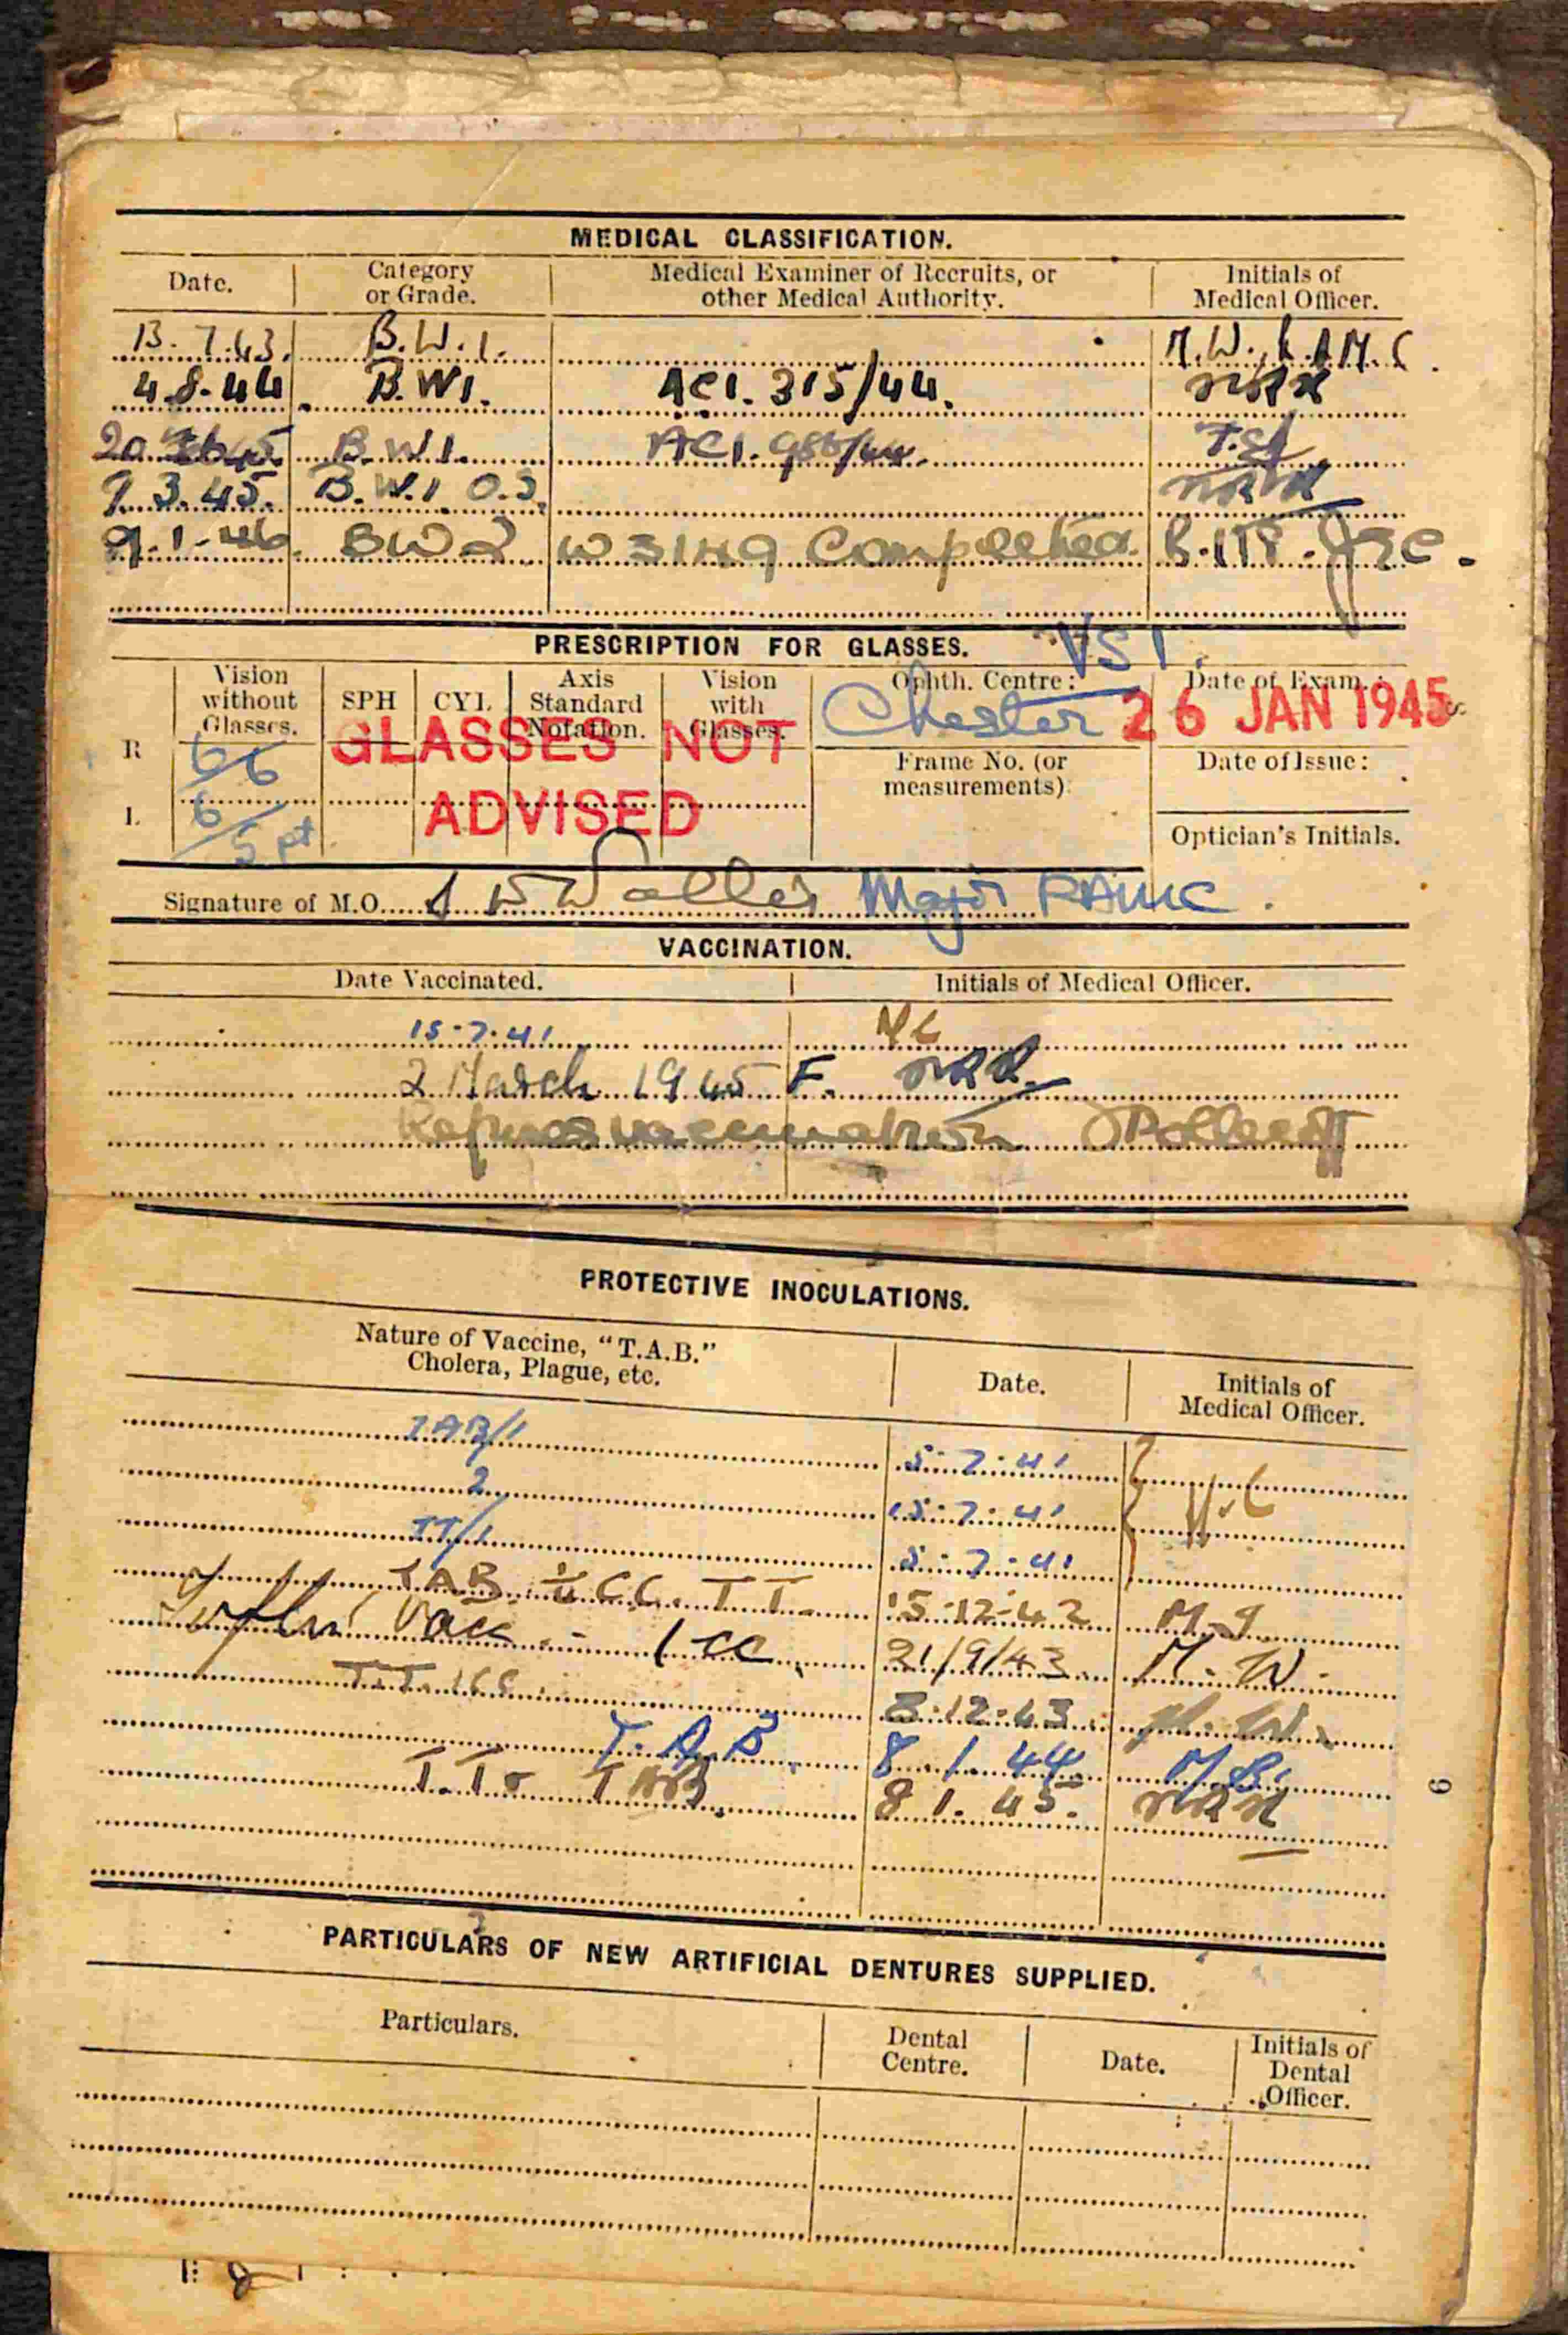 MEDICAL CLASSIFICATION.
Date. Category or Grade. Medical Examiner of Recruits, or other Medical Authority. Initials of Medical Officer.
13.7.43. B.W.1. M.W.
4.8.44 B.W1. ACI. 315/44. NRR
20 B.W.1. ACI. 986/44.
9.3.45. B.W.1 O.S. NRR
9.1-46. BW2 W3149 Completed.
PRESCRIPTION FOR GLASSES. VST.
Vision without Glasses. SPH CYL Axis Standard Notation. Vision with Glasses. Ophth. Centre: Chester Date of Exam.: 26 JAN 1945
R 6/6 GLASSES NOT Frame No. (or measurements) Date of Issue:
L 6/5 pt ADVISED Optician's Initials.
Signature of M.O. Major RAMC.
VACCINATION.
Date Vaccinated. Initials of Medical Officer.
15.7.41
2 March 1945 F. NRR
Refuses vaccination
PROTECTIVE INOCULATIONS.
Nature of Vaccine, "T.A.B." Cholera, Plague, etc. Date. Initials of Medical Officer.
TAB/1 5.7.41
2 15.7.41
TT/1 5.7.41
TAB CC. TT 15-12-42
Vacc 1 cc 21/9/43 M.W.
T.T. 1cc 8.12.43
T.A.B. 8.1.44 M.B.
T.T. TAB 8.1.45. NRR
PARTICULARS OF NEW ARTIFICIAL DENTURES SUPPLIED.
Particulars. Dental Centre. Date. Initials of Dental Officer.
6